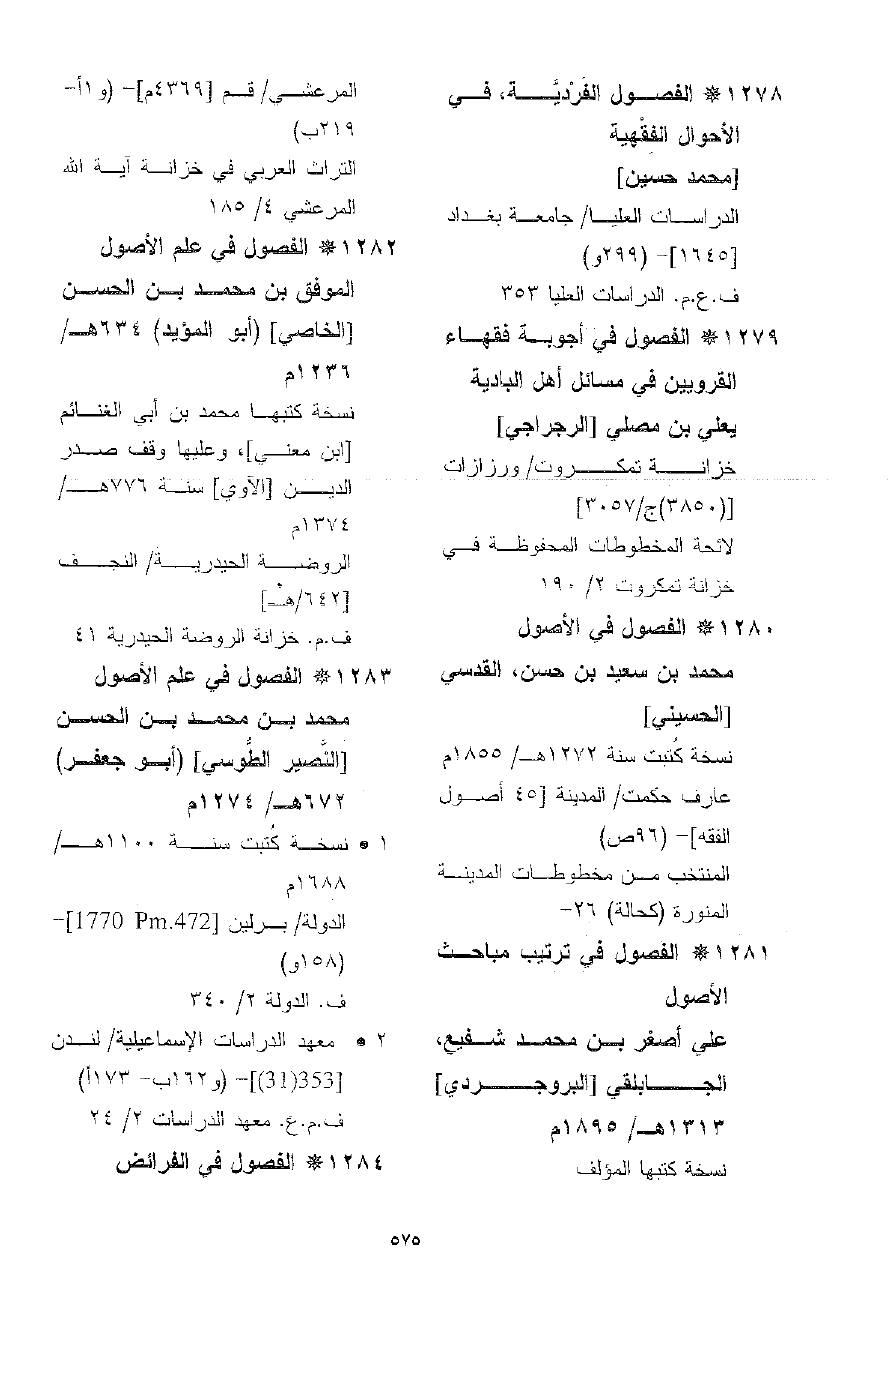 ١٢٧٨ * الفصول الفَرْديَّة، في
الأحوال الفقْهية
[محمد حسين]
الدراسات العليا/ جامعة بغداد
[١٦٤٥]- (٢٩٩و)
ف.ع.م. الدراسات العليا ٣٥٣
١٢٧٩ * الفصول في أجوبة فقهاء
القرويين في مسائل أهل البادية
يعلي بن مصلي [الرجراجي]
خزانة تمكروت/ ورزازات
[(٣٨٥٠)ج/٣٠٥٧]
لائحة المخطوطات المحفوظة في
خزانة تمكروت ٢/ ١٩٠
١٢٨٠ * الفصول في الأصول
محمد بن سعيد بن حسن، القدسي
[الحسيني]
نسخة كُتبت سنة ١٢٧٢هـ/ ١٨٥٥م
عارف حكمت/ المدينة [٤٥ أصول
الفقه]- (٩٦ص)
المنتخب من مخطوطات المدينة
المنورة (كحالة) ٢٦-
١٢٨١ * الفصول في ترتيب مباحث
الأصول
علي أصغر بن محمد شفيع،
الجابلقي [البروجردي]
١٣١٣هـ/ ١٨٩٥م
نسخة كتبها المؤلف
المرعشي/ قم [٤٣٦٩م]- (و١أ-
٢١٩ب)
التراث العربي في خزانة آية الله
المرعشي ٤/ ١٨٥
١٢٨٢ * الفصول في علم الأصول
الموفق بن محمد بن الحسن
[الخاصي] (أبو المؤيد) ٦٣٤هـ/
١٢٣٦م
نسخة كتبها محمد بن أبي الغنائم
[ابن معني]، وعليها وقف صدر
الدين [الآوي] سنة ٧٧٦هـ/
١٣٧٤م
الروضة الحيدرية/ النجف
[٦٤٢/هـ]
ف.م. خزانة الروضة الحيدرية ٤١
١٢٨٣ * الفصول في علم الأصول
محمد بن محمد بن الحسن
[النَّصير الطُّوسي] (أبو جعفر)
٦٧٢هـ/ ١٢٧٤م
١ • نسخة كُتبت سنة ١١٠٠هـ/
١٦٨٨م
الدولة/ برلين [1770 Pm.472]-
(١٥٨و)
ف. الدولة ٢/ ٣٤٠
٢ • معهد الدراسات الإسماعيلية/ لندن
[353(31)]- (و١٦٢ب- ١٧٣أ)
ف.م.ع. معهد الدراسات ٢/ ٢٤
١٢٨٤ * الفصول في الفرائض
٥٧٥